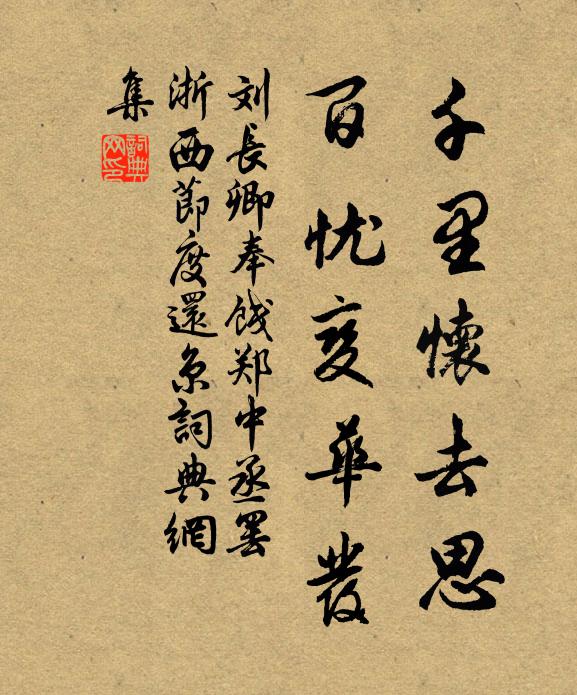 千里懷去思
百忧变华發
刘長卿奉餞郑中丞罢
浙西節度還京詞典網
集
詞典网印